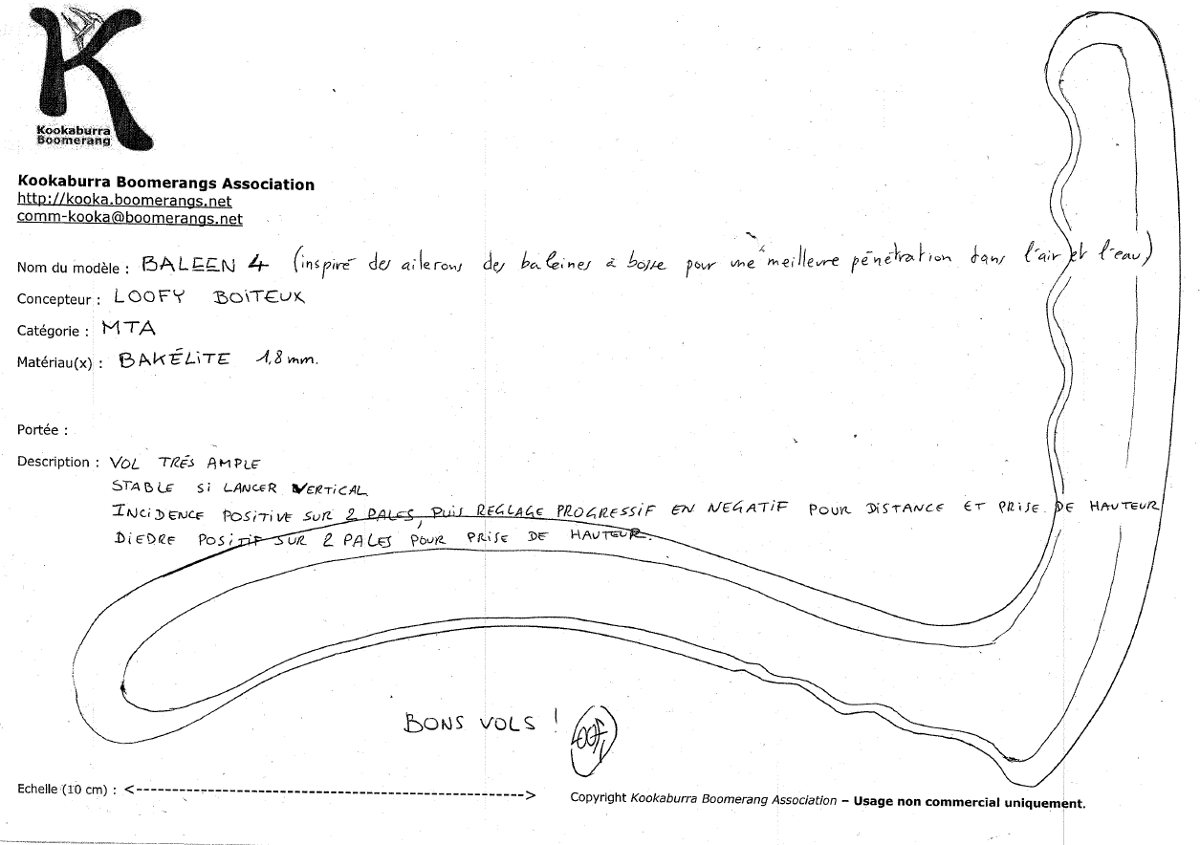 Kookaburra
Boomerang
Kookaburra Boomerangs Association
http://kooka.boomerangs.net
comm-kooka@boomerangs.net
Nom du modèle : BALEEN 4 (inspiré des ailerons des baleines à bosse pour une meilleure pénétration dans l'air et l'eau)
Concepteur : LOOFY BOITEUX
Catégorie : MTA
Matériau(x) : BAKÉLITE 1,8 mm.
Portée :
Description : VOL TRÉS AMPLE
STABLE SI LANCER VERTICAL
INCIDENCE POSITIVE SUR 2 PALES, PUIS REGLAGE PROGRESSIF EN NEGATIF POUR DISTANCE ET PRISE DE HAUTEUR
DIEDRE POSITIF SUR 2 PALES POUR PRISE DE HAUTEUR.
BONS VOLS !
Echelle (10 cm) : <-------------------------------------------------->
Copyright Kookaburra Boomerang Association – Usage non commercial uniquement.